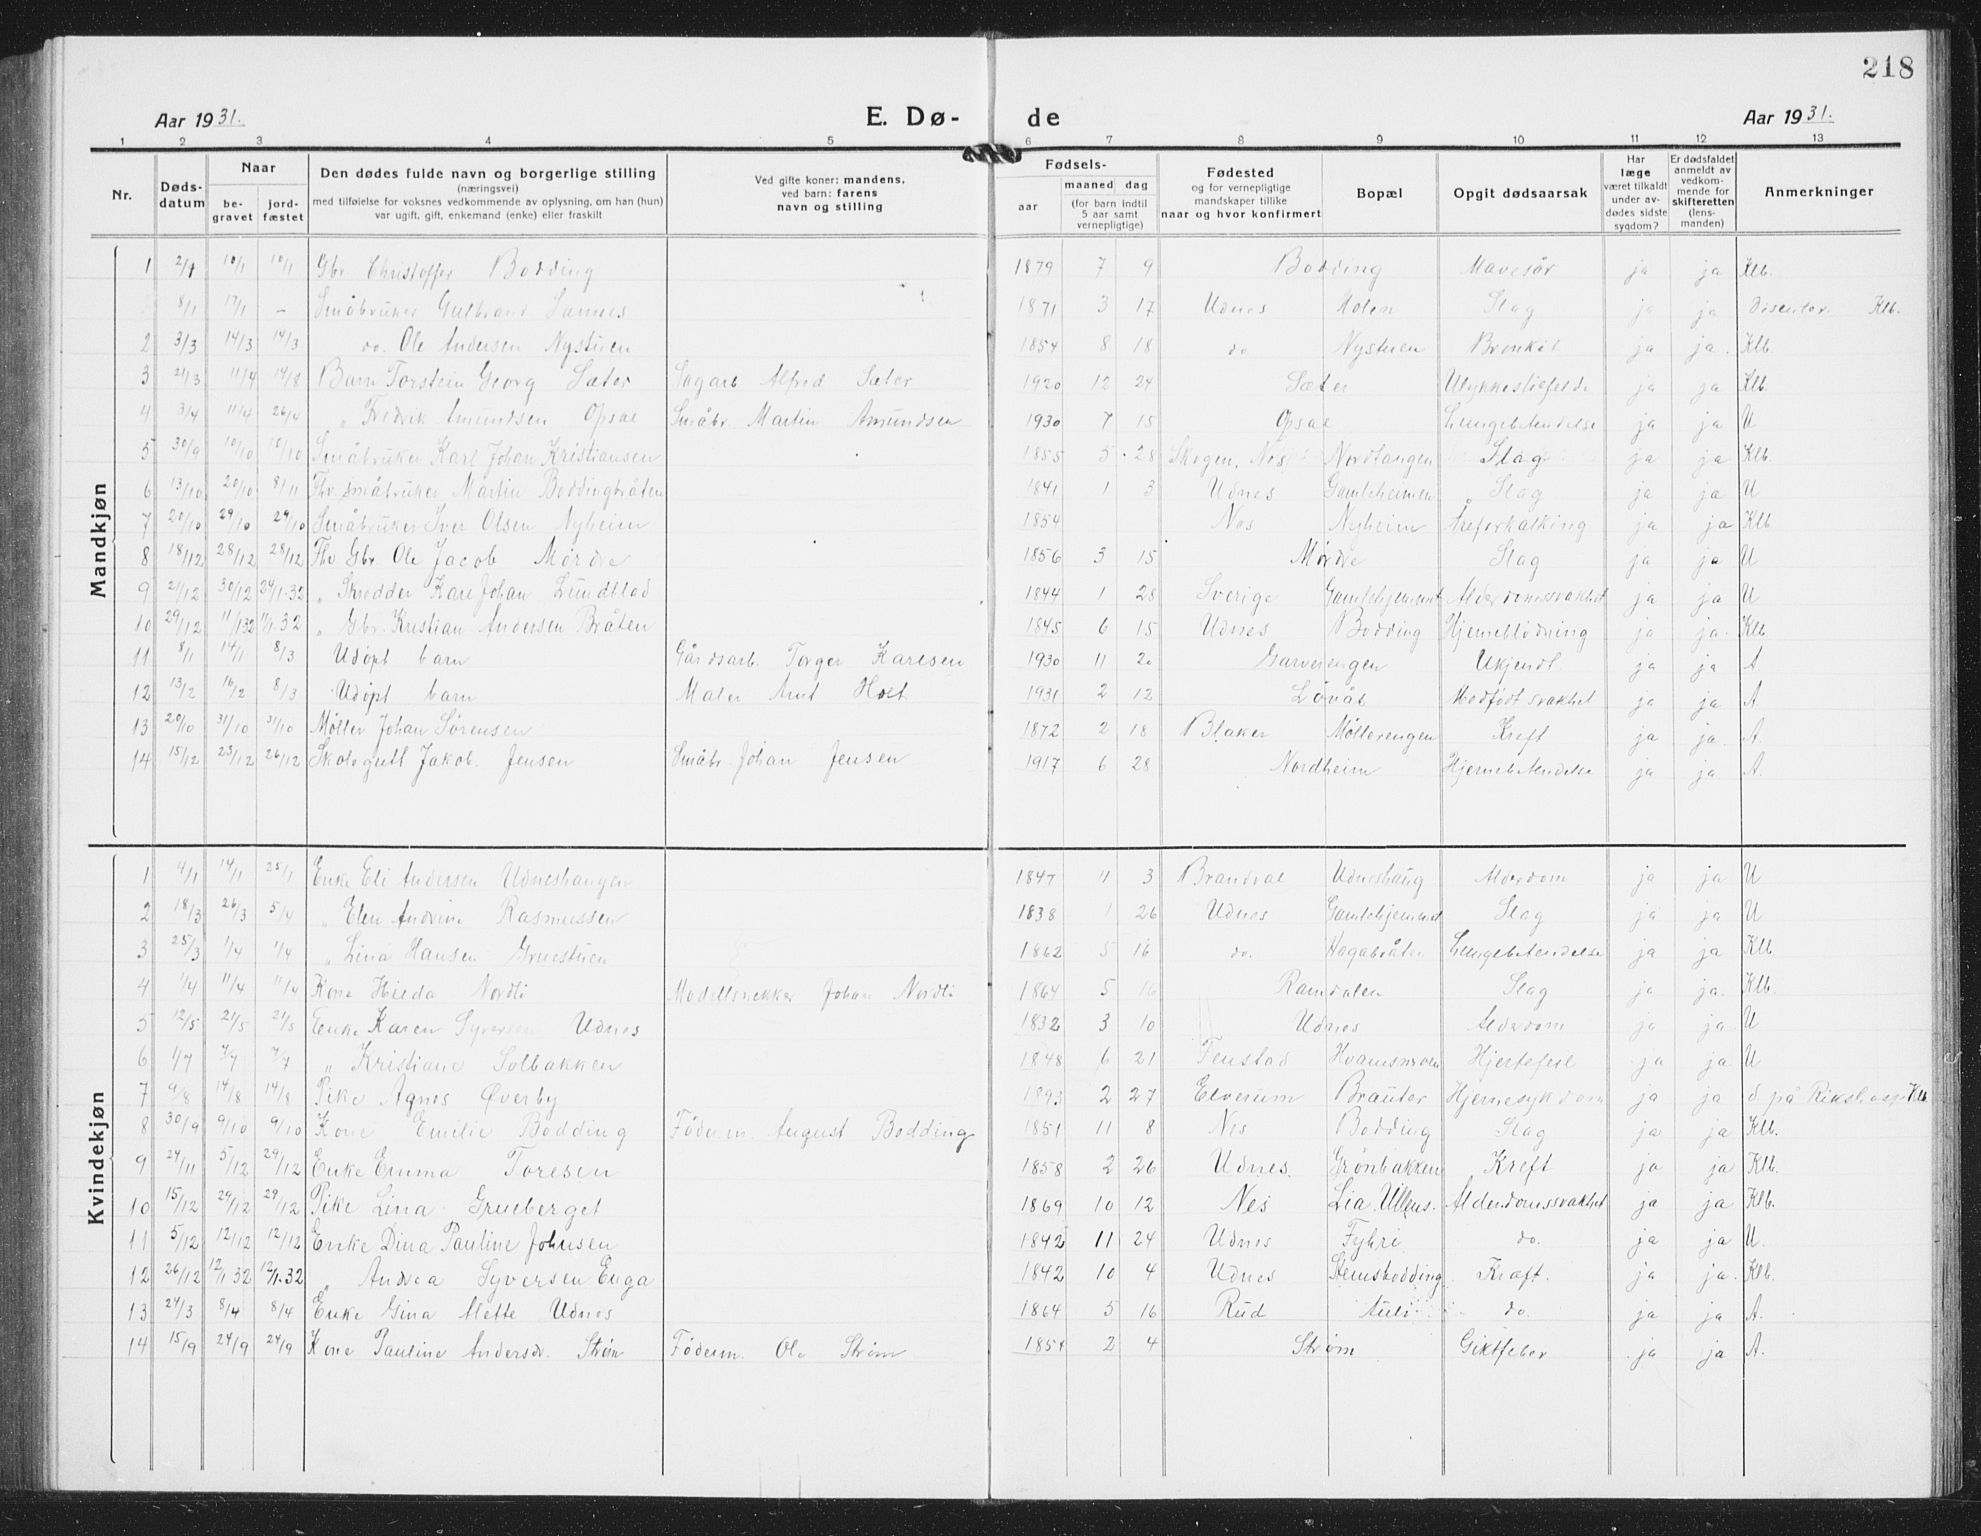 218
Aar 1931. E. Dø- de Aar 1931.
1 2 3 4 5 6 7 8 9 10 11 12 13
Nr.
Døds-
datum
Naar
be-
gravet
jord-
fæstet
Den dødes fulde navn og borgerlige stilling
(næringsvei)
med tilføielse for voksnes vedkommende av oplysning, om han (hun)
var ugift, gift, enkemand (enke) eller fraskilt
Ved gifte koner: mandens,
ved barn: farens
navn og stilling
Fødsels-
aar
maaned dag
(for barn indtil
5 aar samt
vernepligtige)
Fødested
og for vernepligtige
mandskaper tillike
naar og hvor konfirmert
Bopæl
Opgit dødsaarsak
Har
læge
været tilkaldt
under av-
dødes sidste
sygdom?
Er dødsfaldet
anmeldt av
vedkom-
mende for
skifteretten
(lens-
manden)
Anmerkninger
Mandkjøn
1 2/1 10/1 10/1 Gbr Christoffer Bodding 1879 7 9 Bodding Mavesår ja ja Klb.
8/1 17/1 - Småbruker Gulbrand Sannes 1871 3 17 Udnes Holen Slag ja ja Disenter. Klb.
2 3/3 14/3 14/3 do. Ole Andersen Nystuen 1854 8 18 do Nystuen Bronkit ja ja. Klb.
3 21/3 11/4 14/8 Barn Torstein Georg Sæter Sagarb Alfred Sæter 1920 12 24 Sæter Ulykkestilfelde ja ja Klb.
4 3/4 11/4 26/4 " Fredrik Amundsen Opsal Småbr. Martin Amundsen 1930 7 15 Opsal Lungebetendelse ja ja U
5 30/9 10/10 10/10 Småbruker Karl Johan Kristiansen 1855 5 28 Skogen, Nes Nordtangen Slag ja ja Klb.
6 13/10 20/10 8/11 Fhv. småbruker Martin Boddingbråten 1841 1 3 Udnes Gamleheimen Slag ja ja U
7 20/10 29/10 29/10 Småbruker Iver Olsen Nyheim 1854 Nes Nyheim Areforkalking ja ja Klb
8 18/12 28/12 28/12 Fhv Gbr Ole Jacob Mørdre 1856 3 15 Mørdre Slag ja ja U
9 21/12 30/12 24/1-32 " Skredder Karl Johan Lundblad 1844 1 28 Sverige Gamlehjemmet Alderdomssvakhet ja ja U
10 29/12 11/1 32 11/1.32 " Gbr. Kristian Andersen Bråten 1845 6 15 Udnes Bodding Hjerneblödning ja ja. Klb
11 8/1 14/1 8/3 Udøpt barn Gårdsarb. Torger Karlsen 1930 11 20 Garverengen Ukjendt ja ja A.
12 13/2 16/2 8/3 Udøpt barn Maler Arnt Holt 1931 2 12 Lövås Medfödt svakhet ja ja A
13 20/10 31/10 31/10 Møller Johan Sørensen 1872 2 18 Blaker Möllerengen Kreft ja ja. A.
14 15/12 23/12 26/12 Skolegutt Jakob. Jensen Småbr. Johan Jensen 1917 6 28 Nordheim Hjernebetendelse ja ja A.
Kvindekjøn
1 4/1 14/1 25/1 Enke Eli Andersen Udneshaugen 1847 11 3 Brandval Udneshaug Alderdom ja ja U
2 18/3 26/3 5/4 " Elen Andrine Rasmussen 1838 1 26 Udnes Gamlehjemmet Slag ja ja U
3 25/3 1/4 1/4 " Lina Hansen Gruestuen 1862 5 16 do. Hagabråten Lungebetendelse ja ja Klb
4 1/4 11/4 11/4 Kone Hilda Nordli Modellsnekker Johan Nordli 1864 5 16 Ramdalen Slag ja ja. Klb.
5 12/5 21/5 21/5 Enke Karen Syversen Udnes 1832 3 10 Udnes Alderdom ja ja U
6 1/7 7/7 7/7 " Kristiane Solbakken 1848 6 21 Tenstad Hvamsmoen Hjertefeil ja ja U
7 9/8 14/8 14/8 Pike Agnes Øverby 1893 2 27 Elverum Brauter Hjernesykdom ja ja d. på Rikshosp. Klb.
8 30/9 9/10 9/10 Kone Emilie Bodding Föderm. August Bodding 1851 11 8 Nes Bodding Slag ja ja Klb.
9 24/11 5/12 29/12 Enke Emma Toresen 1858 2 26 Udnes. Grönbakken Kreft ja ja Klb.
10 15/12 29/12 29/12 Pike Lina Grueberget 1869 10 12 Nes Lia, Ullens. Alderdomssvakhet ja ja Klb.
11 5/12 12/12 12/12 Enke Dina Pauline Johnsen 1842 11 24 Udnes Fyhri do. ja ja U.
12 26/12 12/1 32 12/1.32 " Andrea Syversen Enga 1842 10 4 Udnes Stemsbodding Kræft. ja ja. Klb.
13 24/3 8/4 8/4 Enke Gina Mette Udnes 1864 5 16 Rud Auli do ja ja A.
14 15/9 24/9 24/9 Kone Pauline Andersdr. Strøm Föderm. Ole Strøm 1854 2 4 Strøm Giktfeber ja ja A.